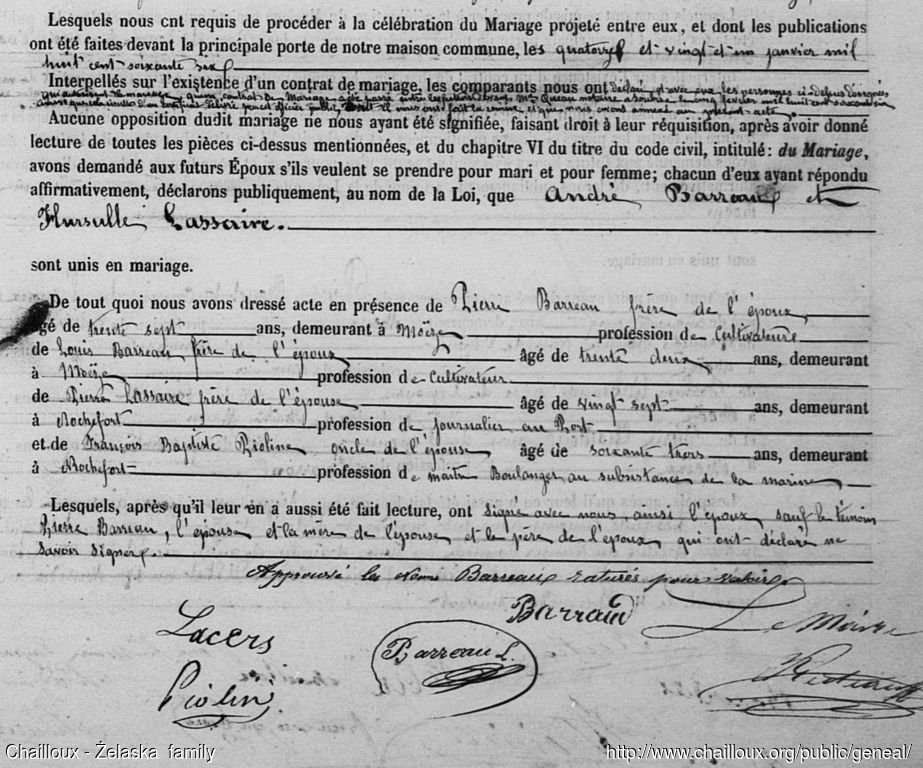 Lesquels nous ont requis de procéder à la célébration du Mariage projeté entre eux, et dont les publications
ont été faites devant la principale porte de notre maison commune, les quatorze et vingt-et-un janvier mil
huit cent soixante six
Interpellés sur l'existence d'un contrat de mariage, les comparants nous ont déclaré, et avec eux les personnes ci-dessus désignées
qui autorisent le mariage, qu'un contrat de Mariage a été passé devant Me notaire à le cinq février mil huit cent soixante six
au présent acte
Aucune opposition dudit mariage ne nous ayant été signifiée, faisant droit à leur réquisition, après avoir donné
lecture de toutes les pièces ci-dessus mentionnées, et du chapitre VI du titre du code civil, intitulé: du Mariage,
avons demandé aux futurs Époux s'ils veulent se prendre pour mari et pour femme; chacun d'eux ayant répondu
affirmativement, déclarons publiquement, au nom de la Loi, que André Barreau et
Hursulle Lassaire.
sont unis en mariage.
De tout quoi nous avons dressé acte en présence de Pierre Barreau frère de l'époux
âgé de trente sept ans, demeurant à Moëze profession de Cultivateur
de Louis Barreau frère de l'époux âgé de trente deux ans, demeurant
à Moëze profession de Cultivateur
de Pierre Lassaire frère de l'épouse âgé de vingt sept ans, demeurant
à Rochefort profession de journalier au Port
et de François Baptiste Pioline oncle de l'épouse âgé de soixante trois ans, demeurant
à Rochefort profession de maître Boulanger au subsistance de la marine
Lesquels, après qu'il leur en a aussi été fait lecture, ont signé avec nous ainsi l'époux, sauf le témoin
Pierre Barreau, l'épouse et la mère de l'épouse et le père de l'époux qui ont déclaré ne
savoir signer.
Approuvé les noms Barreau raturés pour valoir
Barraud
Le Maire
Lacers
Barreau L.
Piolin
Chailloux - Żelaska family
http://www.chailloux.org/public/geneal/